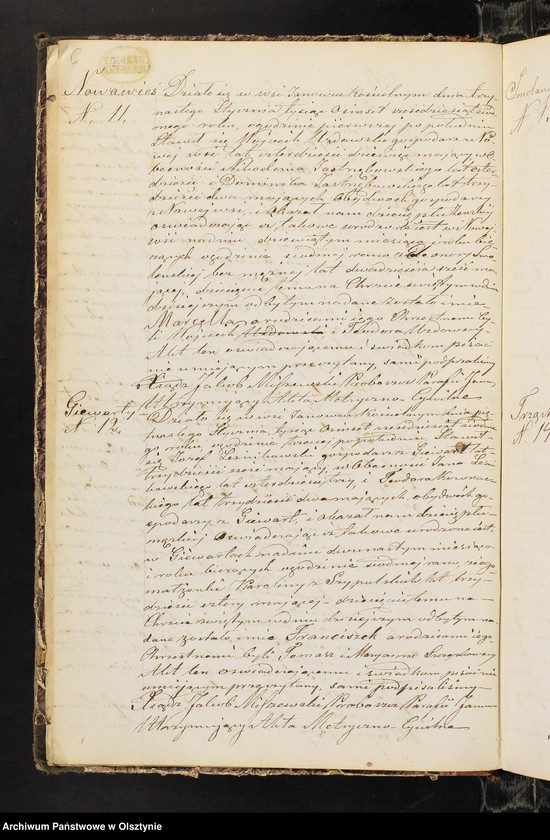 6
Nowawieś
N. 11.
Działo się w wsi Janowie Kościelnym dnia trzy-
nastego Stycznia tysiąc ośmset sześćdziesiąt siód-
mego roku, o godzinie pierwszej po południu
Stawił się Wojciech gospodarz z No-
wej wsi lat czterdzieści dziewięć mający, w O-
becności Nikodema Jastrzębowskiego lat czter-
dzieści i Dominika Jastrzębowskiego lat trzy-
dzieści dwa mających obydwóch gospodarzy
z Nowej wsi, i okazał nam dziecię płci męskiej
oświadczając iż takowe urodzone iest w Nowej
wsi na dniu dziewiątym miesiąca i roku bie-
rących o godzinie siódmej rano z
bezmężnej lat dwadzieścia sześć ma-
jącej, dziecięciu temu na Chrzcie świętym w dniu
dzisiejszym odbytym nadane zostało imie
Marcella, a rodzicami jego Chrzestnemi by-
li Wojciech i Teodora
Akt ten oświadczającemu i świadkom pisać
nie umiejącym przeczytany, sami podpisaliśmy
Xiądz Jakob Miszewski Proboszcz Parafii Janow
Utrzymujący Akta Metryczno Cywilne
Giewarty
N. 12.
Działo się w wsi Janowie Kościelnym dnia
Stycznia tysiąc ośmset sześćdziesiąt siódme-
go roku o godzinie trzeciej po południu Stawił
się Józef gospodarz z Giewart lat
trzydzieści sześć mający, w Obecności Jana
lat czterdzieści trzy, i Teodora
lat trzydzieści dwa mających, obydwóch go-
spodarzy z Giewart, i okazał nam dziecię płci
męzkiej oświadczając iż takowe urodzone iest
w Giewartach na dniu dwunastym miesiąca
i roku bierących o godzinie siódmej rano, z jego
małżonki Karoliny z Szypulskich lat trzy-
dzieści cztery mającej – dziecięciu temu na
Chrzcie świętym w dniu dzisiejszym odbytym na-
dane zostało imie Franciszek a rodzicami jego
Chrzestnemi byli Tomasz i Maryanna
Akt ten oświadczającemu i świadkom pisać nie
umiejącym przeczytany, sami podpisaliśmy
Xiądz Jakob Miszewski Proboszcz Parafii Janow
Utrzymujący Akta Metryczno Cywilne
Archiwum Państwowe w Olsztynie